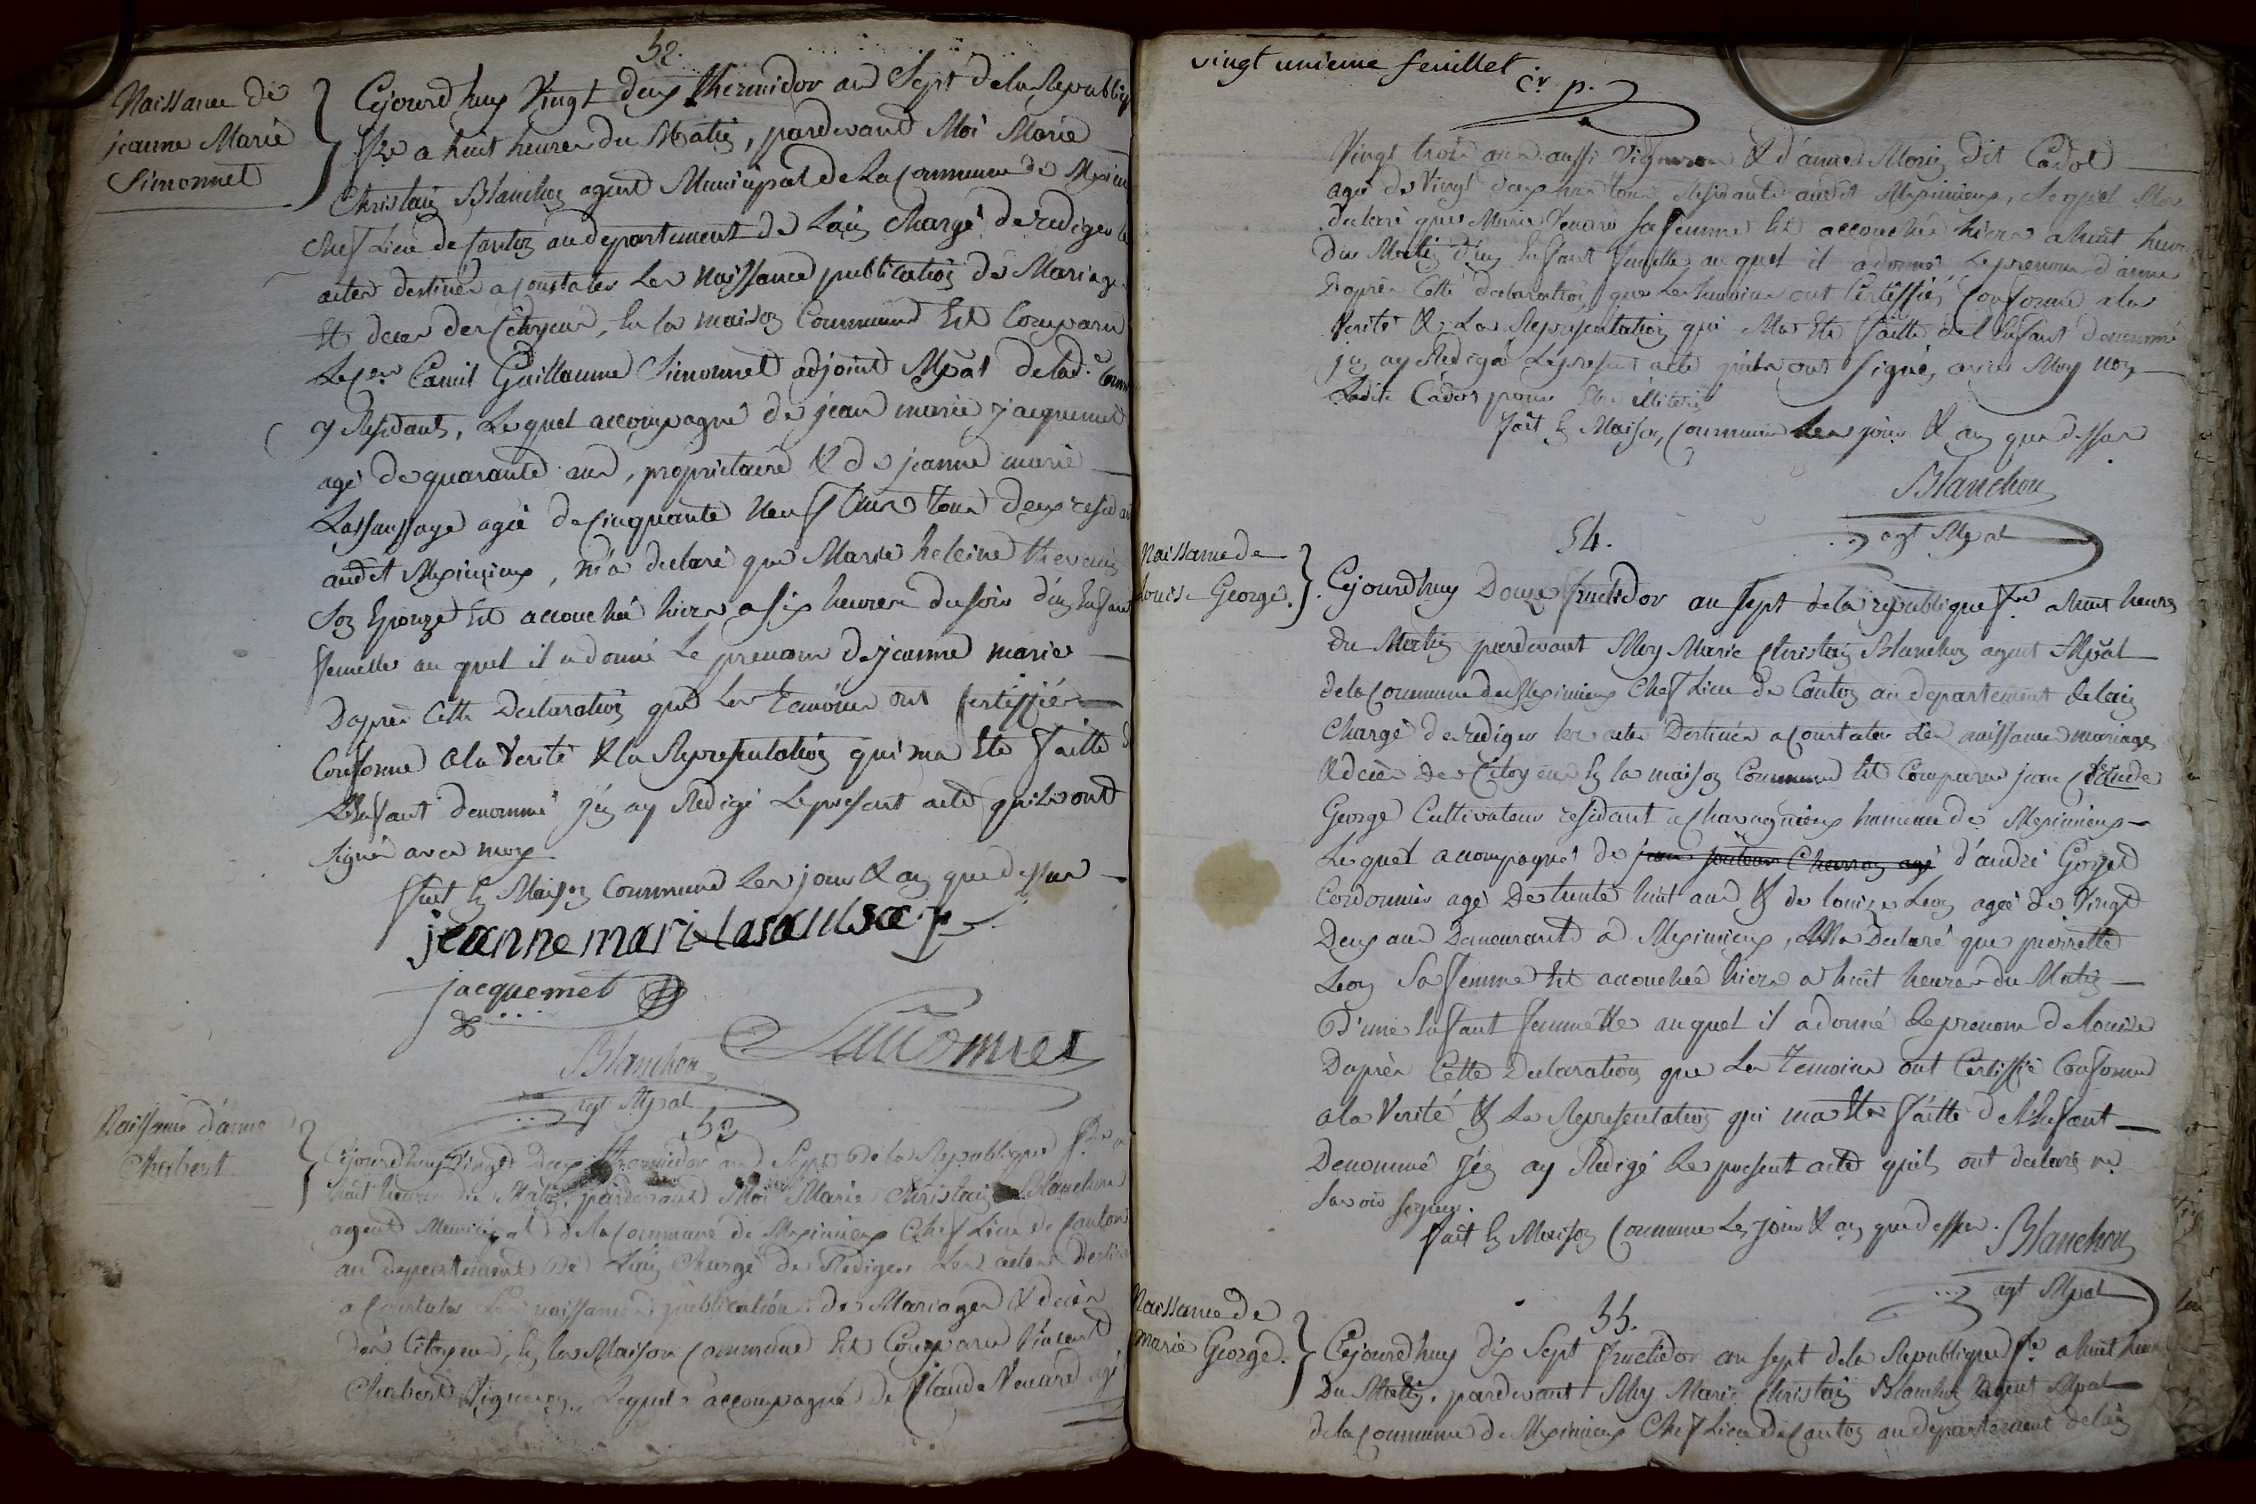 52.
Naissance de
jeanne Marie
Simonnet
Cejourd huy Vingt deux thermidor an Sept de la Republiq
fse a huit heures du Matin, pardevant Moi Marie
Christain Blanchon agent Municipal de La Commune de Meximi
Chef Lieu de Canton au departement de Lain Chargé de rediger le
actes destinés a constater Les Naissance publication de Mariage
Et deces des Citoyens, En la maison Commune Est Comparu
Le Cen Guillaume Simonnet adjoint Mpal de lad. Comm
y Residant, Lequel accompagné de jean marie jacquemet
agé de quarante ans, proprietaire & de jeanne marie
Lassaussaye agée de Cinquante Neuf Ans tous deux resida
audit Meximieux, m'a declaré que Marie heleine thevenin
Son Epouze Est accouchée hier a six heures du soir d'un Enfant
femelle au quel il a donné Le prenom de jeanne marie
Daprès Cette Declaration que Les temoins ont Certiffiés
Conforme a la Verité & la Representation qui ma Eté faitte d
LEnfant denommé j'en ay Redigé Le present acte quils ont
Signés avec moy
fait En Maison Commune Les jour & an que dessus
jeanne mari lasausae
jacquemet
Simonnet
Blanchon
agt Mpal
53
Naissance d'anne
Chabert
Cejourd huy Vingt Deux thermidor an Sept de la Republique fse a
huit heures du Matin, pardevant Moi Marie Christain Blanchon
agent Municipal de la Commune de Meximieux Chef Lieu de Canton
au departement de Lain Chargé de Rediger Les actes Destin
a Constater Les naissances publications de Mariages & decès
des Citoyens, En la Maison Commune Est Comparu Vincent
Chabert Vigneron, Lequel accompagné de Claude Venard agé
vingt unieme feuillet
Cr p.
Vingt trois ans aussi Vigneron & d'anne Morin dit Cadot
agée de Vingt deux ans tous Residants audit Meximieux, Lequel Ma
declaré que Marie Venard sa femme Est accouchée hier a huit heur
Du Matin d'un Enfant femelle au quel il a donné Le prenom d'anne
Daprès Cette declaration que Les temoins ont Certiffiés Conforme a la
Verité & La Representation qui Ma Eté faitte de l'Enfant denommé
j'en ay Redigé Le present acte quils ont Signés avec Moy non
Ladite Cadot pour Etre illiterée
fait En Maison Commune Les jour & an que dessus
Blanchon
agt Mpal
54.
Naissance de
Louise George.
Cejourd huy Douze fructidor an sept de la republique fse a huit heures
Du Matin pardevant Moy Marie Christain Blanchon agent Mpal
de la Commune de Meximieux Chef Lieu de Canton au departement de lain
Chargé de rediger les actes Destinés a constater Les naissances mariages
& decès des Citoyens En la maison Commune Est Comparu jean Claude
George Cultivateur residant a Chavagnieux hameau de Meximieux
Lequel accompagné de d'andré Goyet
Cordonnier agé De trente huit ans & de louise Leon agée de Vingt
Deux ans Demeurant a Meximieux, Ma Declaré que pierrette
Leon Sa femme Est accouchée hier a huit heures du Matin
D'une Enfant femelle au quel il a donné Le prenom de louise
Daprès Cette Declaration que Les temoins ont Certiffié Conforme
a la Verité & La Representation qui ma Eté faitte de l'Enfant
Denommé j'en ay Redigé Le present acte quils ont declaré ne
Savoir signer.
fait En Maison Commune Les jour & an que dessus.
Blanchon
agt Mpal
55.
Naissance de
marie George.
Cejourd huy dix Sept fructidor an sept de la Republique fse a huit heur
Du Matin, pardevant Moy Marie Christain Blanchon agent Mpal
de la Commune de Meximieux Chef Lieu De Canton au departement de lain